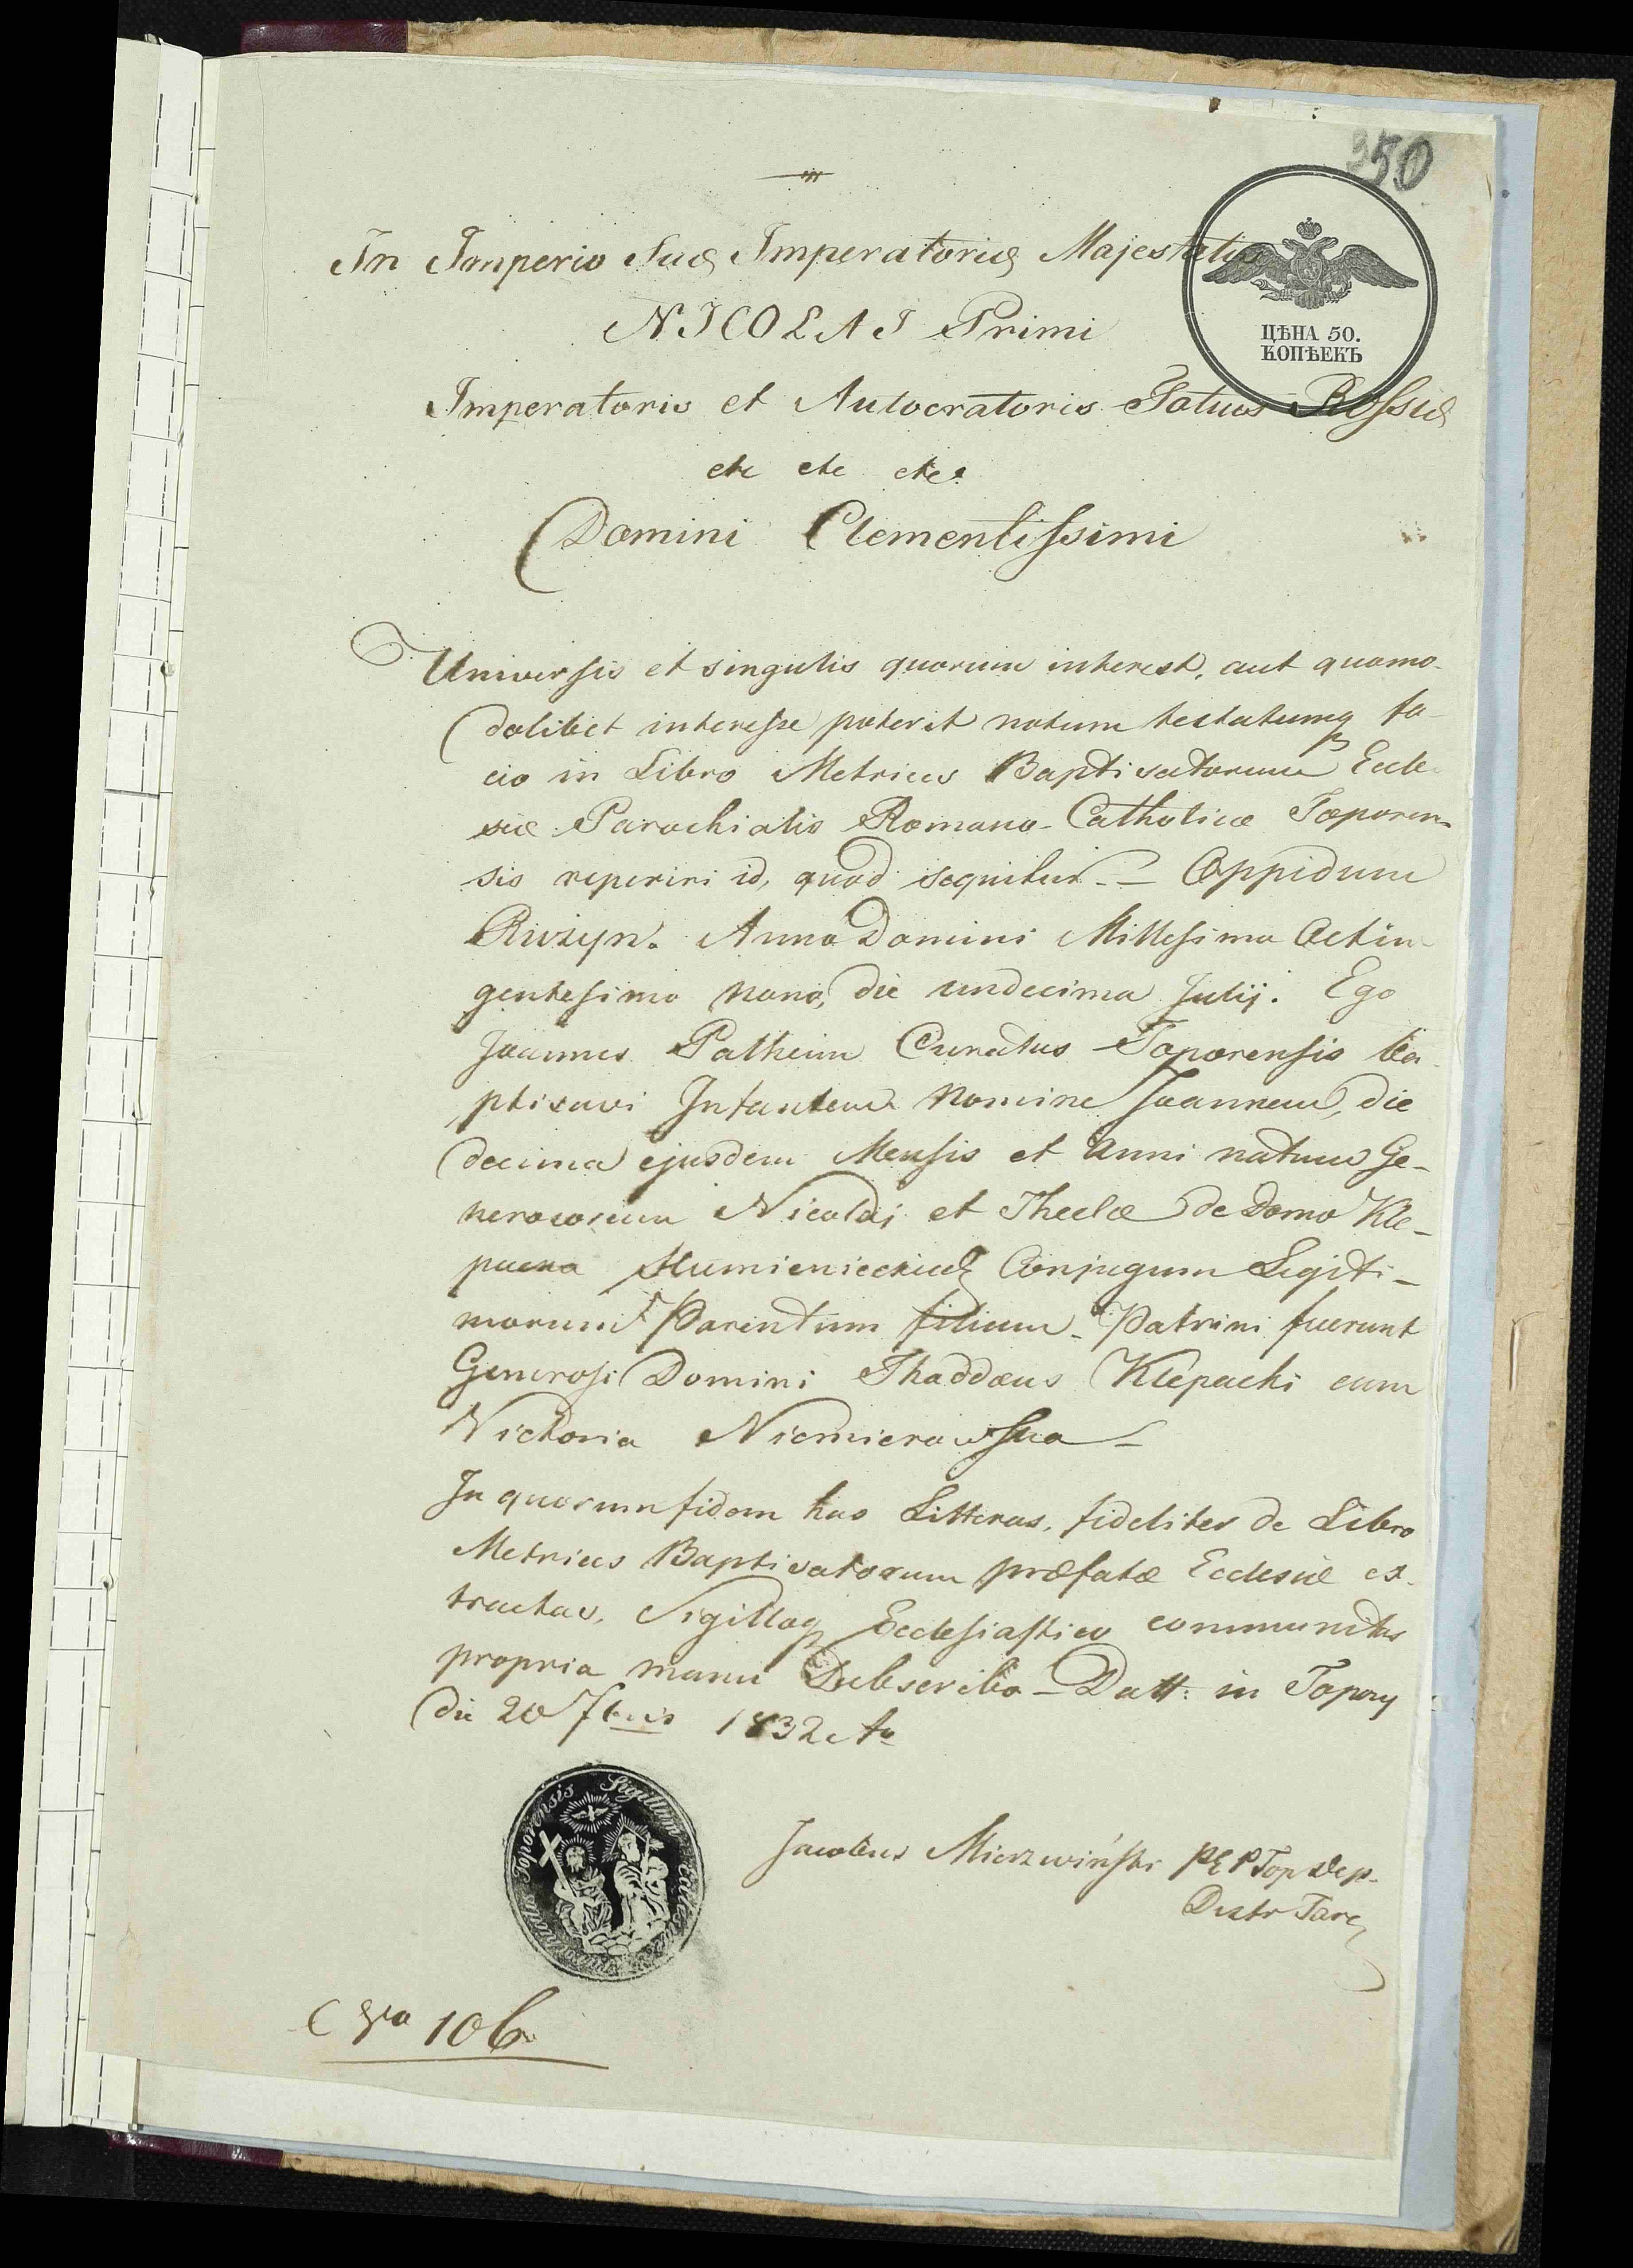 350
In Imperio Suæ Imperatoriæ Majestatis
NICOLAI Primi
ЦѢНА 50.
КОПѢЕКЪ
Imperatoris et Autocratoris Totius Rossiæ
etc etc etc.
Domini Clementissimi
Universis et singulis quorum interest, aut quomo-
dolibet interesse poterit notum testatumq fa-
cio in Libro Metrices Baptisatorum Eccle-
siæ Parochialis Romano-Catholicæ Toporen-
sis reperiri id, quod sequitur. — Oppidum
Rużyn. Anno Domini Millesimo Octin
gentesimo nono, die undecima Julij. Ego
Joannes Patheim Curatus Toporensis ba
ptisavi Infantem Nomine Joannem, die
decima ejusdem Mensis et Anni natum Ge-
nerosorum Nicolai et Theclæ de Domo Kle-
packa Humienieckich Conjugum Legiti-
morum Parentum filium. Patrini fuerunt
Generosi Domini Thaddæus Klepacki cum
Victoria Niemierowska —
In quorum fidem has Litteras, fideliter de Libro
Metrices Baptisatorum præfatæ Ecclesiæ ex-
tractas, Sigilloq Ecclesiastico communitas
propria manu Subscribo — Datt: in Topory
die 20 7bris 1832 Ao
Sigillum Ecclesiæ Toporensis
Jacobus Mierzwiński P E P Top Dep.
106